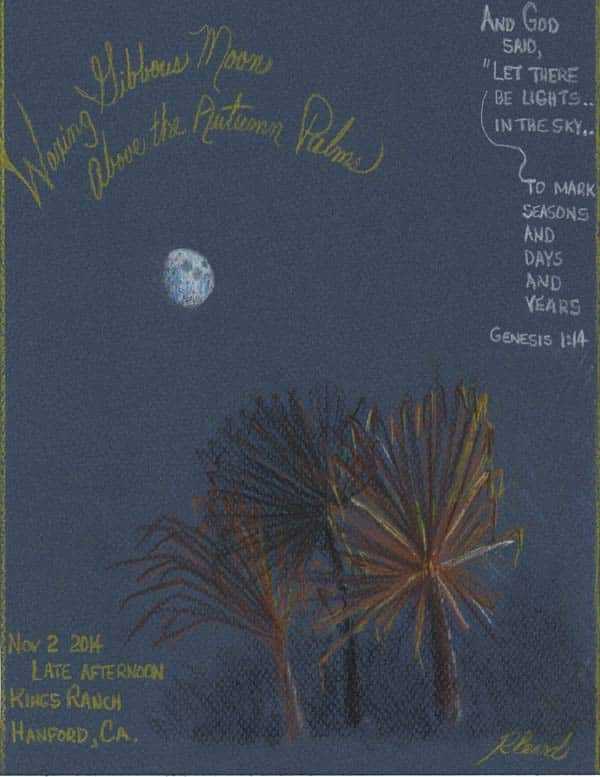 Waxing Gibbous Moon
above the Autumn Palms
AND GOD
SAID,
"LET THERE
BE LIGHTS..
IN THE SKY..
TO MARK
SEASONS
AND
DAYS
AND
YEARS
GENESIS 1:14
NOV 2 2014
LATE AFTERNOON
KINGS RANCH
HANFORD, CA.